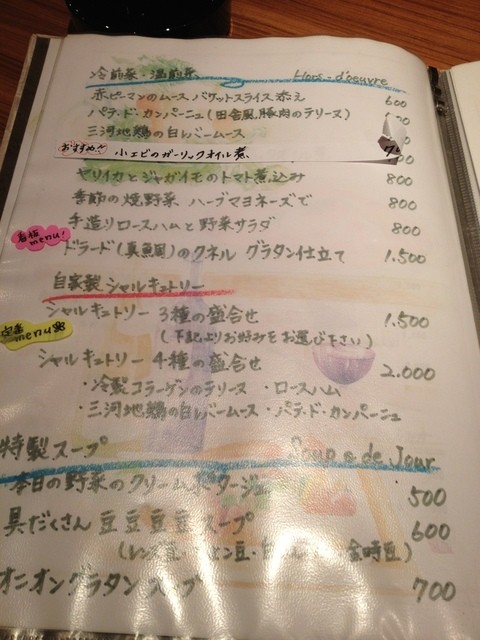 冷前菜・温前菜 Hors-d'oeuvre
赤ピーマンのムース バゲットスライス添え 600
パテ・ド・カンパーニュ(田舎風豚肉のテリーヌ)
三河地鶏の白レバームース
おすすめ!! 小エビのガーリックオイル煮
ヤリイカとジャガイモのトマト煮込み 800
季節の焼野菜 ハーブマヨネーズで 800
手造りロースハムと野菜サラダ 800
看板menu!
ドラード(真鯛)のクネル グラタン仕立て 1.500
自家製シャルキュトリー
シャルキュトリー 3種の盛合せ 1.500
(下記よりお好みをお選び下さい)
定番menu
シャルキュトリー 4種の盛合せ 2.000
・冷製コラーゲンのテリーヌ ・ロースハム
・三河地鶏の白レバームース ・パテ・ド・カンパーニュ
特製スープ Soup de Jour
本日の野菜のクリームポタージュ 500
具だくさん 豆豆豆豆スープ 600
(レンズ豆・ 金時豆)
オニオングラタンスープ 700